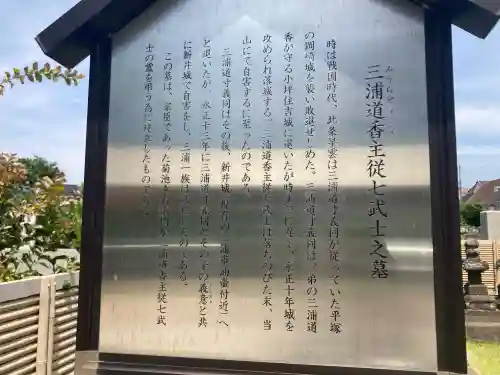 三浦道香主従七武士之墓
時は戦国時代、北条早雲は三浦道寸義同が従っていた平塚
の岡崎城を襲い敗退せしめた。三浦道寸義同は、弟の三浦道
香が守る小坪住吉城に退いたが時すでに遅く、永正十年城を
攻められ落城する。三浦道香主従七武士は落ちのびた末、当
山にて自害するに至ったのである。
三浦道寸義同はその後、新井城(現在の三浦市油壷付近)へ
と退いたが、永正十三年に三浦道寸義同とその子の義意と共
に新井城で自害をし、三浦一族は したのである。
この墓は、家臣であった菊池 三浦道香主従七武
士の霊を弔う為に建立したものである。